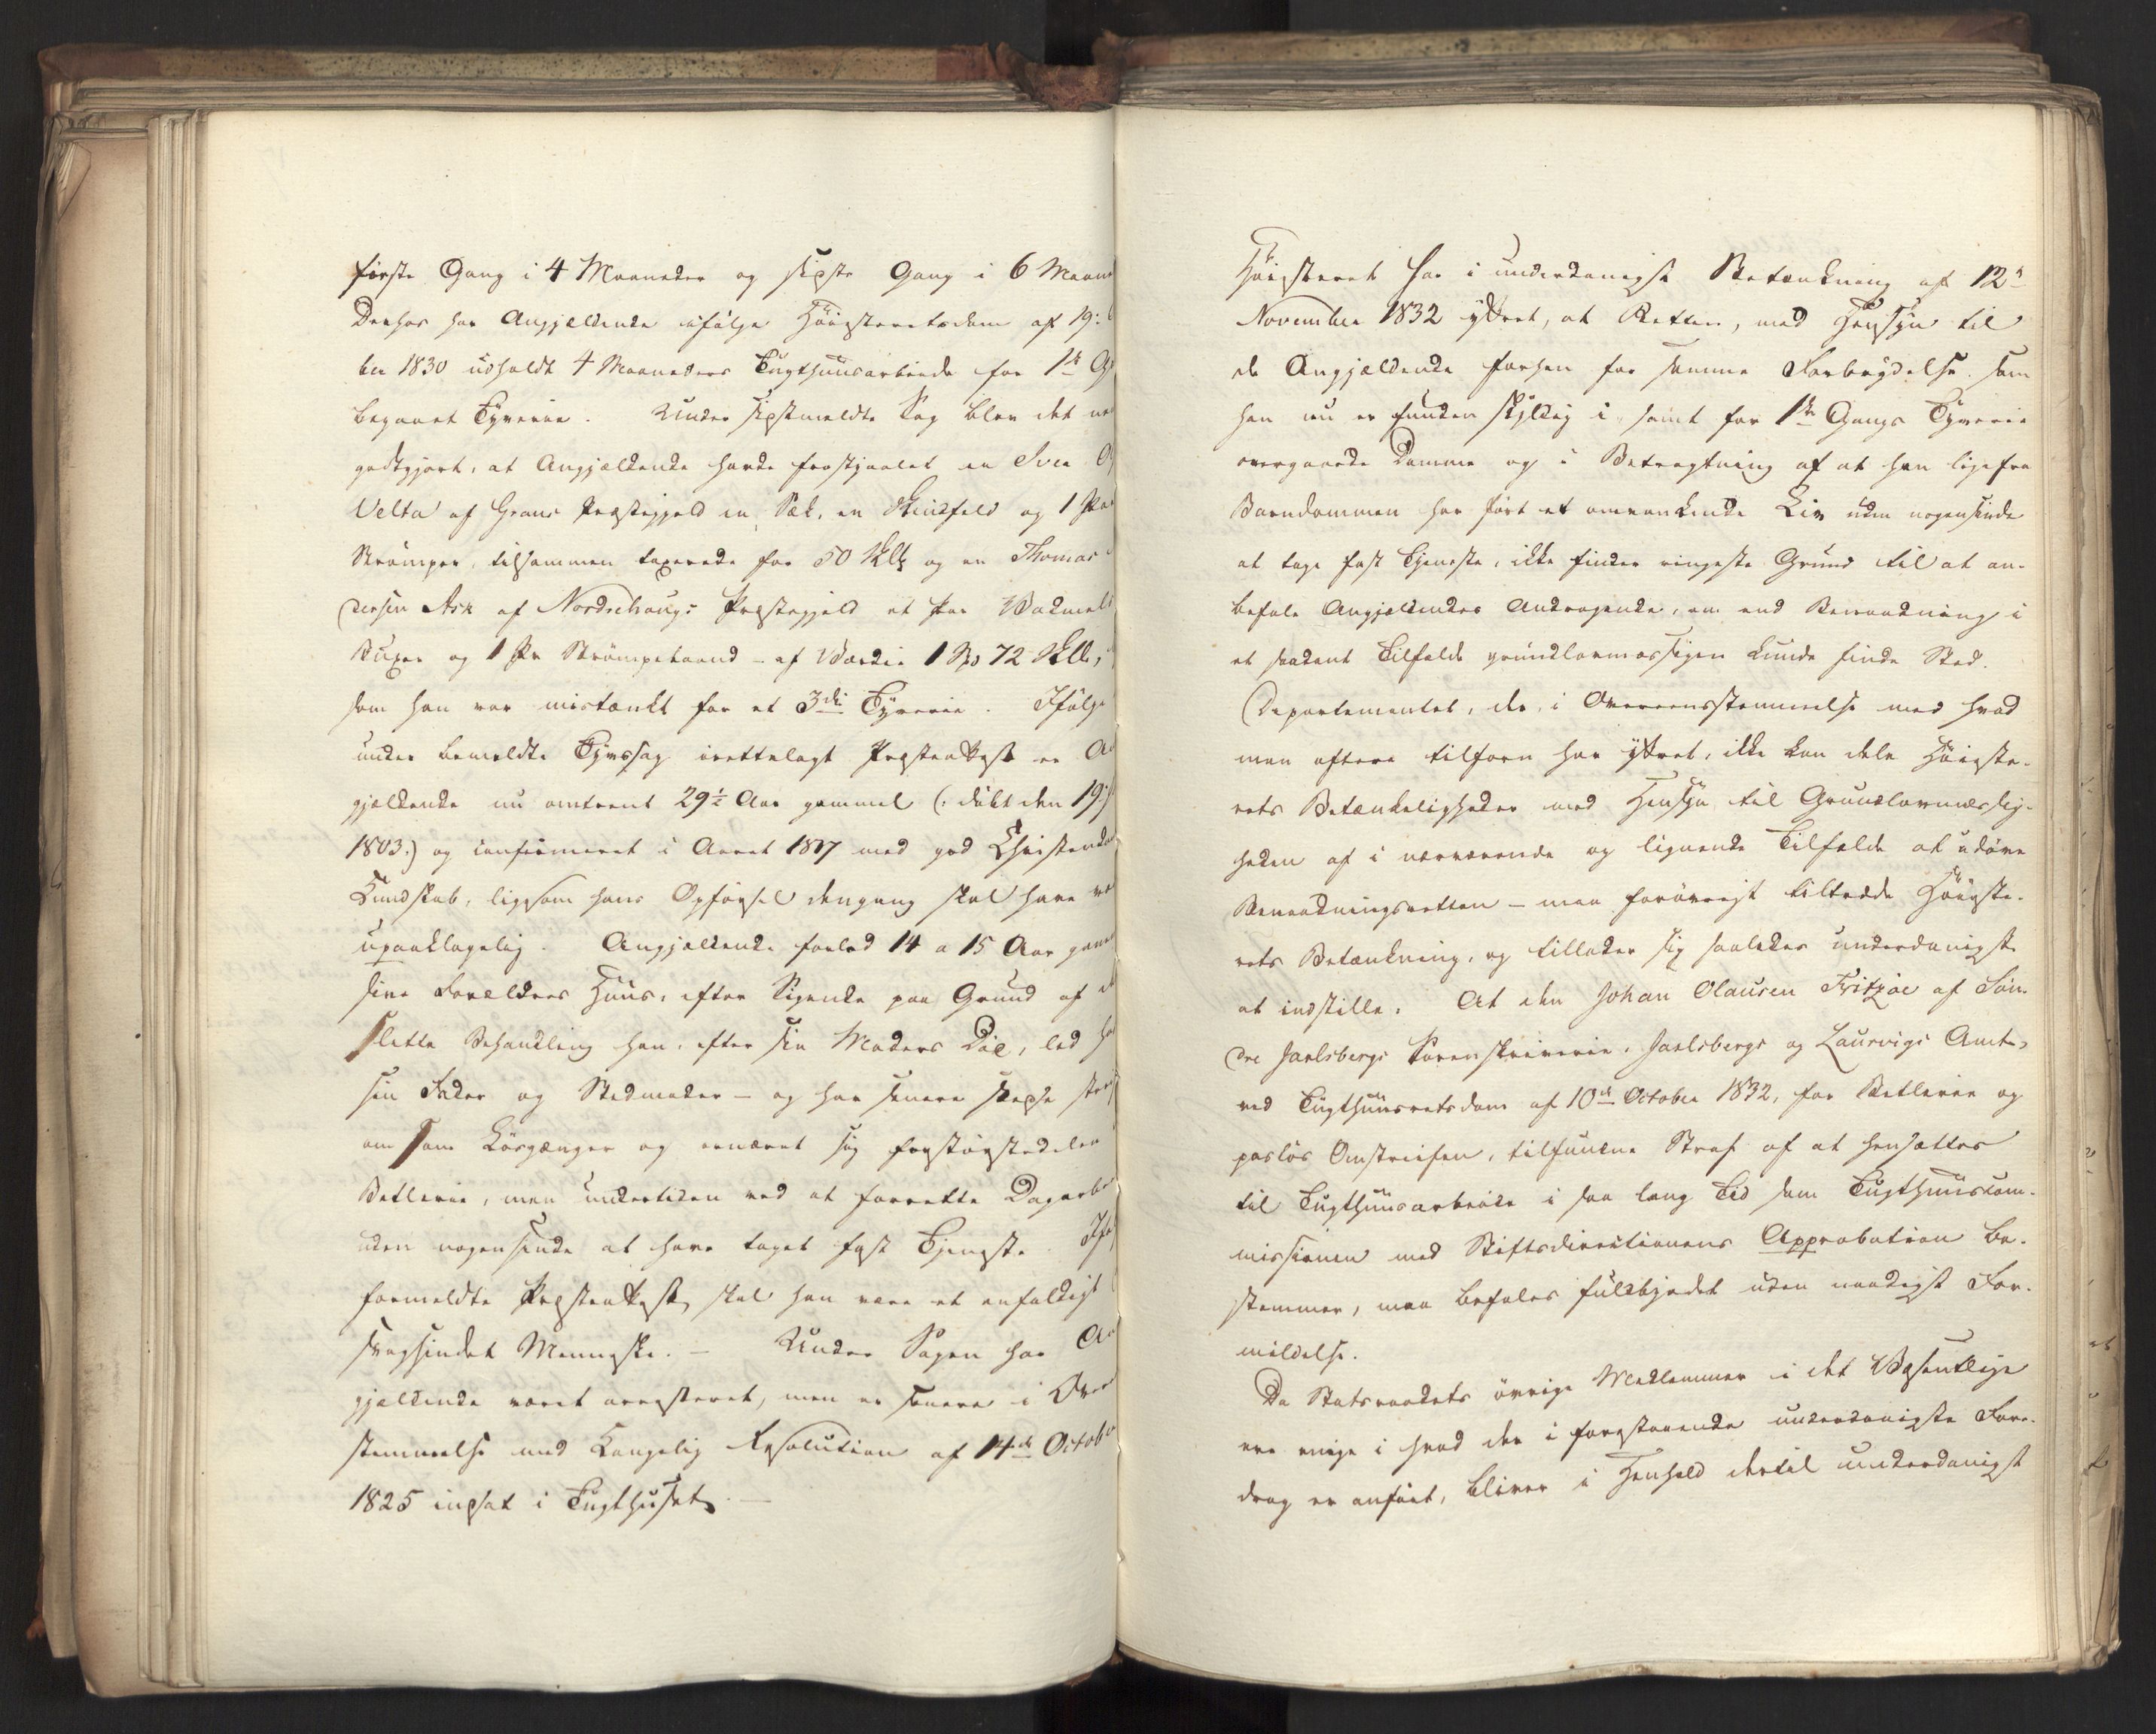 første Gang i 4 Maaneder og sidste Gang i 6 Maane
Derhos har Angjældende ifølge Høiesteretsdom af 19:
ber 1830 udholdt 4 Maaneders Tugthuusarbeide for 1ste G
begaaet Tyverie. Under sidstmeldte Sag blev det
godtgjort, at Angjældende havde frastjaalet en Iver
Velta af Grans Præstegjeld en Sæk, en Skindfeld og 1 Par
Strømper, tilsammen taxerede for 50 Skll og en Thomas
dersen Ask af Nordrehougs Præstegjeld et Par Vadmels
Buxer og 1 Pr Strømpebaand - af Værdie 1 Spd 72 Skll,
som han var mistænkt for et 3die Tyverie. Ifølge
under bemeldte Tyvssag irettelagt Præsteattest er A
gjældende nu omtrent 29½ Aar gammel (: døbt den 19:
1803:) og confirmeret i Aaret 1817 med god Christendo
Kundskab, ligesom hans Opførsel dengang skal have
upaaklagelig. Angjældende forlod 14 a 15 Aar gam
sine Forældres Huus, efter Sigende paa Grund af
slette Behandling han, efter sin Moders Død, led
sin Fader og Stedmoder - og har senere
om som Løsgænger og ernæret sig forstørstedelen
Betlerie, men undertiden ved at forrette Dagarbe
uden nogensinde at have taget fast Tjeneste. Ifø
formeldte Præsteattest skal han være et enfoldigt
svagsindet Menneske. - Under Sagen har A
gjældende været arresteret, men er senere i Over
stemmelse med Kongelig Resolution af 14de Octobe
1825 indsat i Tugthuset. -
Høiesteret har i underdanigst Betænkning af 12te
November 1832 yttret, at Retten, med Hensyn til
de Angjældende forhen for samme Forbrydelse som
han nu er funden skyldig i, samt for 1ste Gangs Tyverie
overgaaede Domme og i Betragtning af at han ligefra
Barndommen har ført et omvankende Liv uden nogensinde
at tage fast Tjeneste, ikke finder ringeste Grund til at an-
befale Angjældendes Andragende, om end Benaadning i
et saadant Tilfælde grundlovmæssigen kunde finde Sted.
Departementet, der, i Overeensstemmelse med hvad
man oftere tilforn har yttret, ikke kan dele Høieste-
rets Betænkeligheder med Hensyn til Grundlovmæssig-
heden af i nærværende og lignende Tilfælde at udøve
Benaadningsretten - maa forøvrigt tiltræde Høieste-
rets Betænkning, og tillader sig saaledes underdanigst
at indstille: At den Johan Olausen Fritzøe af Søn-
dre Jarlsbergs Sorenskriverie, Jarlsbergs og Laurvigs Amt,
ved Tugthuusretsdom af 10de October 1832, for Betlerie og
pasløs Omstreifen, tilfundne Straf af at hensættes
til Tugthuusarbeide i saa lang Tid som Tugthuuscom-
missionen med Stiftsdirectionens Approbation be-
stemmer, maa befales fuldbyrdet uden naadigst For-
mildelse.
Da Statsraadets øvrige Medlemmer i det Væsentlige
ere enige i hvad der i foregstaaende underdanigste Fore-
drag er anført, bliver i Henhold dertil underdanigst